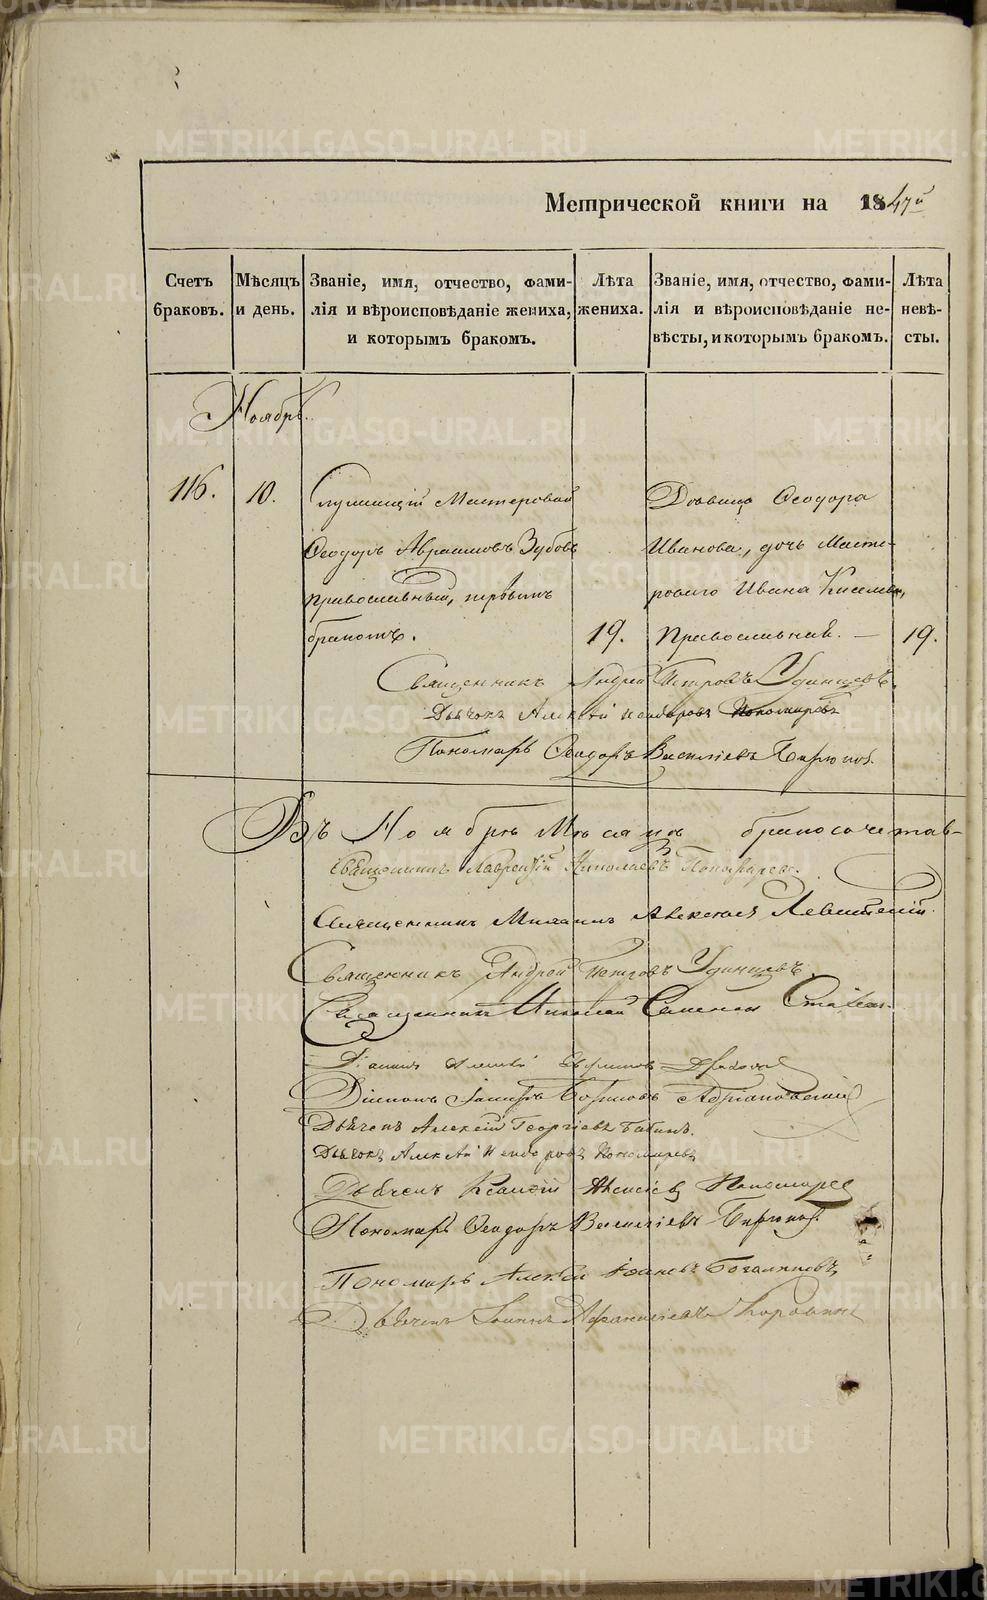 Метрической книги на 1847й
Счетъ браковъ.
Мѣсяцъ и день.
Званіе, имя, отчество, фами-
лія и вѣроисповѣданіе жениха,
и которымъ бракомъ.
Лѣта жениха.
Званіе, имя, отчество, фами-
лія и вѣроисповѣданіе не-
вѣсты, и которымъ бракомъ.
Лѣта невѣ-
сты.
Ноябрь.
116.
10.
Служащій Мастеровой
Ѳеодоръ Авраамовъ Зубовъ
православный, первымъ
бракомъ.
19.
Дѣвица Ѳеодора
Иванова, дочь Масте-
роваго Ивана
Православная.
19.
Священникъ Андрей Петровъ Удинцевъ.
Дьячокъ Алексій Пономаревъ
Пономарь Ѳеодоръ Васильевъ Бирюковъ.
Въ Ноябрѣ Мѣсяцѣ бракосочетав-
Священникъ Лаврентій Николаевъ Пономаревъ.
Священникъ Михаилъ Алексѣевъ Левитскій.
Священникъ Андрей Петровъ Удинцевъ.
Священникъ Николай
Діаконъ Алексѣй
Діаконъ Адріановскій
Дьячекъ Алексій Георгіевъ Бабинъ.
Дьячокъ Алексій Пономаревъ
Дьячекъ Пономаревъ
Пономарь Ѳеодоръ Васильевъ Бирюковъ.
Пономарь Алексѣй Іоанновъ Богомоловъ
Дьячекъ Іоаннъ Афанасіевъ Коровинъ
METRIKI.GASO-URAL.RU